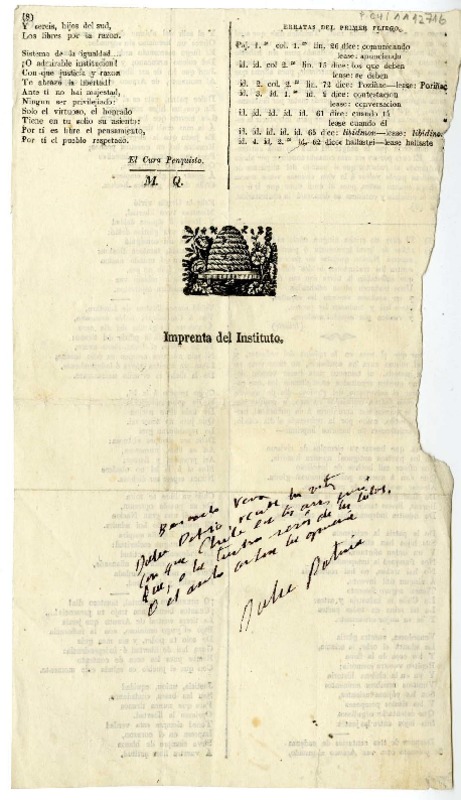 (8)
Y sereis, hijos del sud,
Los libres por la razon.
Sistema de la igualdad....
¡O admirable institucion!
Con que justicia y razon
Te abraza la libertad!
Ante ti no hai majestad,
Ningun ser privilejiado:
Solo el virtuoso, el honrado
Tiene en tu solio su asiento:
Por tí es libre el pensamiento,
Por tí el pueblo respetado.
El Cura Penquisto.
M. Q.
ERRATAS DEL PRIMER PLIEGO.
Paj. 1.ª col. 1.ª lin. 26 dice: comunicando
lease:
id. id. col 2.ª lin. 15 dice: los que deben
lease: se deben
id. 2. col. 2.ª lin. 72 dice: Poriñac—lease: Poriñac
id. 3. id. 1.ª id. 9 dice: contestacion
lease: conversacion
id. id. id. id. id. 61 dice: cuando tú
lease cuando él
id. id. id. id. id. 65 dice: libidmos—lease: libidino
id. 4. id. 2.ª id. 62 dice: hallastei—lease hallaste
Imprenta del Instituto.
Dulce Patria recibe los votos
Con que Chile en tus aras juró
Que, o la tumba serás de los libres,
O el asilo contra la opresion
Dulce Patria